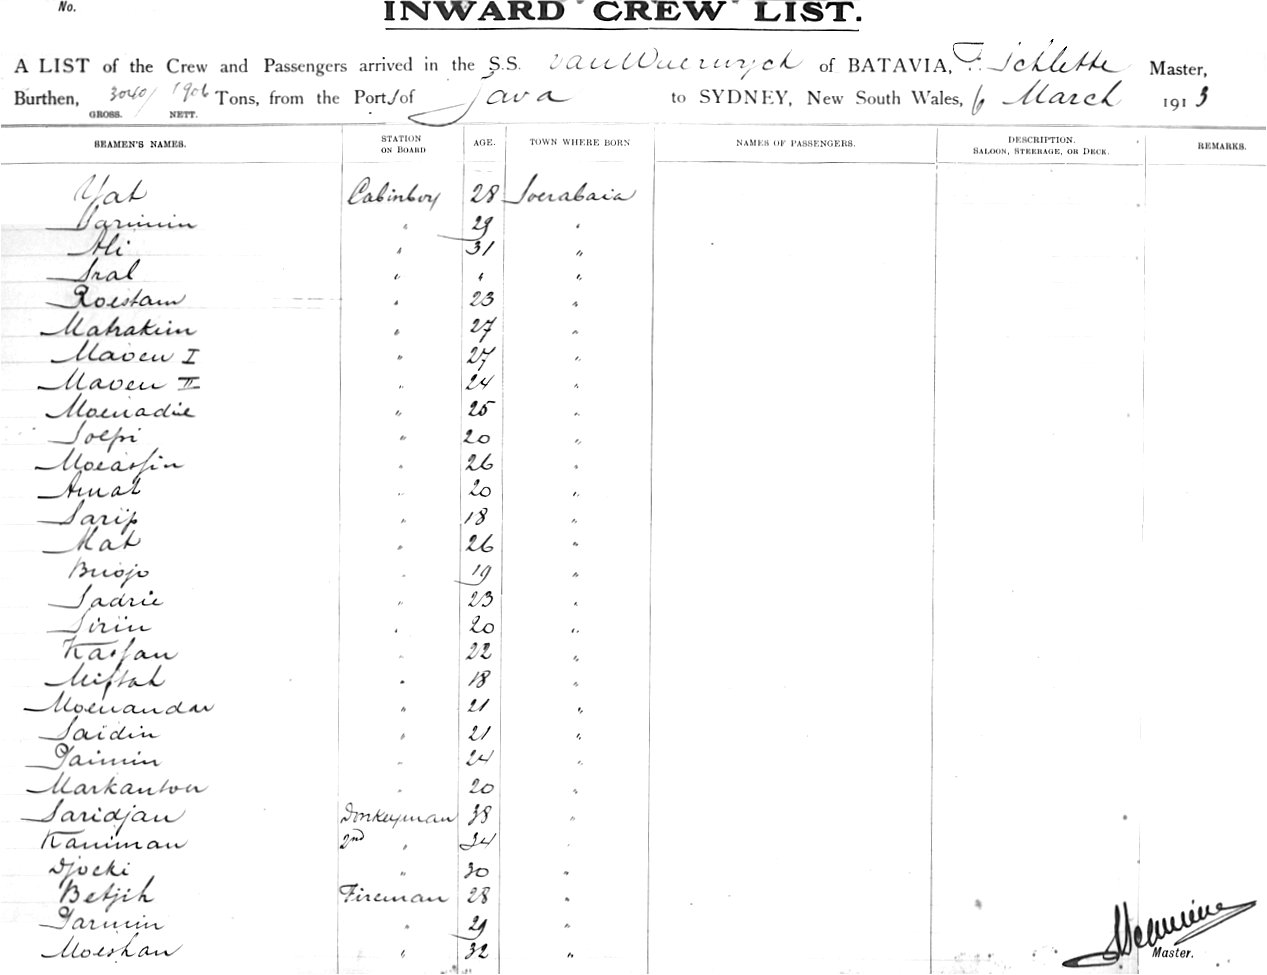 No.
INWARD CREW LIST.
A LIST of the Crew and Passengers arrived in the S.S. van Waerwyck of BATAVIA, F. Schlette Master,
Burthen, 3040/ 1906 Tons, from the Port/s of Java to SYDNEY, New South Wales, 6 March 1913
GROSS. NETT.
SEAMEN'S NAMES. STATION ON BOARD AGE. TOWN WHERE BORN NAMES OF PASSENGERS. DESCRIPTION. SALOON, STEERAGE, OR DECK. REMARKS.
Yat Cabinboy 28 Soerabaia
Sarimin " 29 "
Ali " 31 "
Sral " " "
Roestam " 23 "
Mahakim " 27 "
Maven I " 27 "
Maven II " 24 "
Moenadie " 25 "
Soepi " 20 "
Moeassin " 26 "
Amat " 20 "
Sarip " 18 "
Mat " 26 "
" 19 "
Sadrie " 23 "
Sirin " 20 "
Kassan " 22 "
Miftah " 18 "
Moenandar " 21 "
Saidin " 21 "
Paimin " 24 "
Markantow " 20 "
Saridjan Donkeyman 38 "
Kaniman 2nd " 34 "
Djoeki " 30 "
Betjik Fireman 28 "
Parmin " 29 "
Moeshan " 32 "
Master.